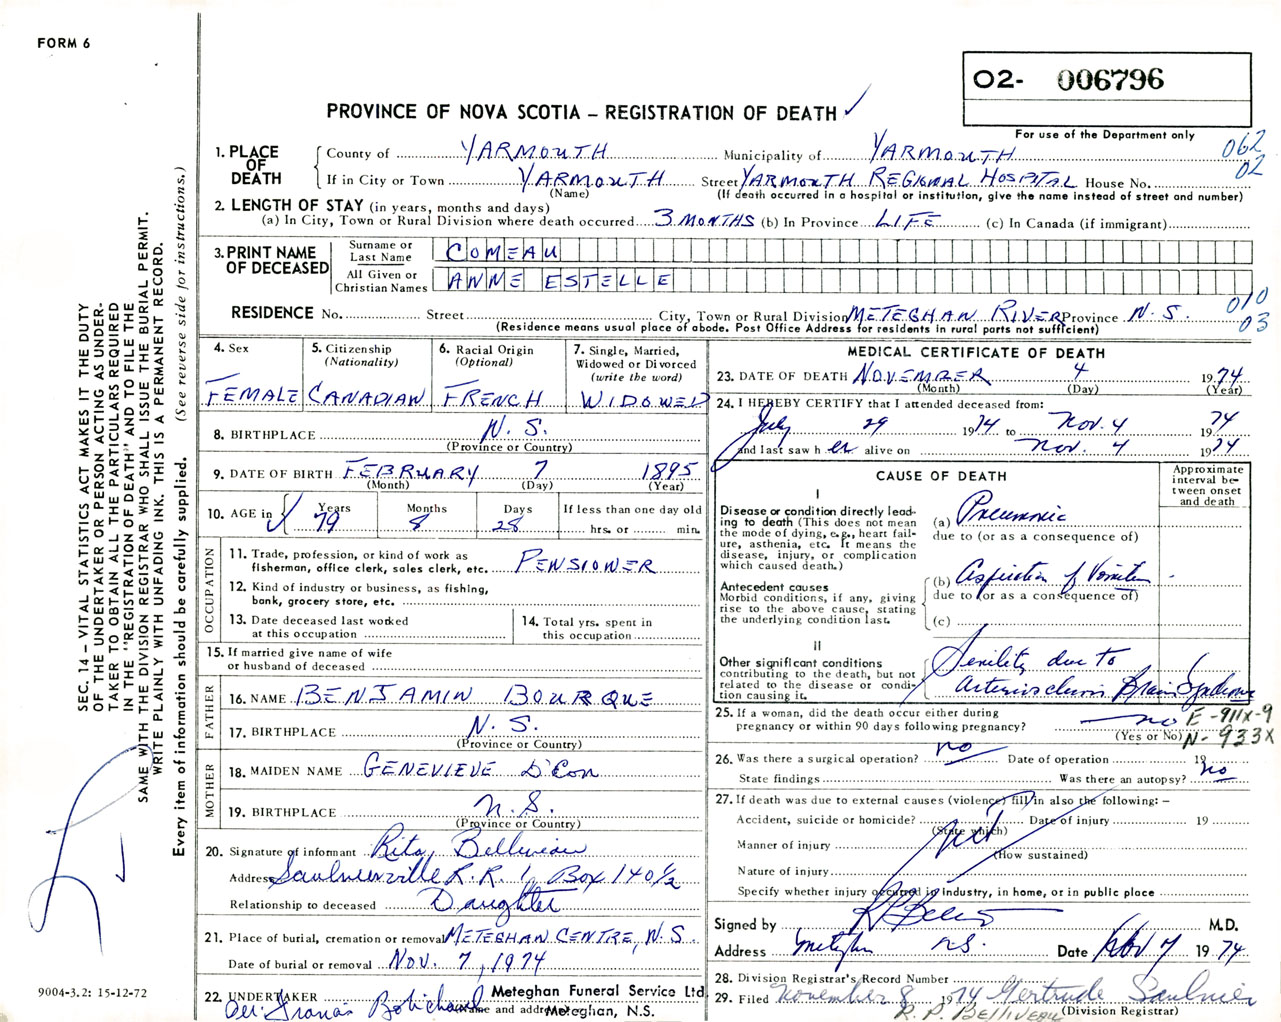 FORM 6
O2- 006796
PROVINCE OF NOVA SCOTIA – REGISTRATION OF DEATH ✓
For use of the Department only
062
02
1. PLACE OF DEATH
County of YARMOUTH Municipality of YARMOUTH
If in City or Town YARMOUTH Street YARMOUTH REGIONAL HOSPITAL House No.
(Name) (If death occurred in a hospital or institution, give the name instead of street and number)
2. LENGTH OF STAY (in years, months and days)
(a) In City, Town or Rural Division where death occurred 3 MONTHS (b) In Province LIFE (c) In Canada (if immigrant)
3. PRINT NAME OF DECEASED
Surname or Last Name COMEAU
All Given or Christian Names ANNE ESTELLE
010
03
RESIDENCE No. Street City, Town or Rural Division METEGHAN RIVER Province N.S.
(Residence means usual place of abode. Post Office Address for residents in rural parts not sufficient)
4. Sex FEMALE
5. Citizenship (Nationality) CANADIAN
6. Racial Origin (Optional) FRENCH
7. Single, Married, Widowed or Divorced (write the word) WIDOWED
8. BIRTHPLACE N.S.
(Province or Country)
9. DATE OF BIRTH FEBRUARY 7 1895
(Month) (Day) (Year)
10. AGE in Years 79 Months 8 Days 28 If less than one day old hrs. or min.
OCCUPATION
11. Trade, profession, or kind of work as fisherman, office clerk, sales clerk, etc. PENSIONER
12. Kind of industry or business, as fishing, bank, grocery store, etc.
13. Date deceased last worked at this occupation
14. Total yrs. spent in this occupation
15. If married give name of wife or husband of deceased
FATHER
16. NAME BENJAMIN BOURQUE
17. BIRTHPLACE N.S.
(Province or Country)
MOTHER
18. MAIDEN NAME GENEVIEVE D'Eon
19. BIRTHPLACE N.S.
(Province or Country)
20. Signature of informant Rita Belliveau
Address Saulnierville R.R. 1, Box 140½
Relationship to deceased Daughter
21. Place of burial, cremation or removal METEGHAN CENTRE, N.S.
Date of burial or removal NOV. 7, 1974
22. UNDERTAKER Meteghan Funeral Service Ltd
Name and address Meteghan, N.S.
Francis Robichaud
MEDICAL CERTIFICATE OF DEATH
23. DATE OF DEATH NOVEMBER 4 1974
(Month) (Day) (Year)
24. I HEREBY CERTIFY that I attended deceased from:
July 29 1974 to Nov. 4 1974
and last saw her alive on Nov. 4 1974
CAUSE OF DEATH
Approximate interval between onset and death
I
Disease or condition directly leading to death (This does not mean the mode of dying, e.g., heart failure, asthenia, etc. It means the disease, injury, or complication which caused death.)
(a) Pneumonia
due to (or as a consequence of)
Antecedent causes
Morbid conditions, if any, giving rise to the above cause, stating the underlying condition last.
(b) Aspiration of Vomitus
due to (or as a consequence of)
(c)
II
Other significant conditions contributing to the death, but not related to the disease or condition causing it.
Senility due to
Arteriosclerosis Brain Syndrome
25. If a woman, did the death occur either during pregnancy or within 90 days following pregnancy? no
(Yes or No)
E-911X-9
N-933X
26. Was there a surgical operation? no Date of operation 19
State findings Was there an autopsy? no
27. If death was due to external causes (violence) fill in also the following: –
Accident, suicide or homicide? Date of injury 19
(State which)
Manner of injury
(How sustained)
Nature of injury
Specify whether injury occurred in industry, in home, or in public place
Signed by M.D.
Address Meteghan N.S. Date Nov 7 1974
28. Division Registrar's Record Number
29. Filed November 8 1974 Gertrude Saulnier
(Division Registrar)
R. P. BELLIVEAU
SEC. 14 – VITAL STATISTICS ACT MAKES IT THE DUTY
OF THE UNDERTAKER OR PERSON ACTING AS UNDER-
TAKER TO OBTAIN ALL THE PARTICULARS REQUIRED
IN THE "REGISTRATION OF DEATH" AND TO FILE THE
SAME WITH THE DIVISION REGISTRAR WHO SHALL ISSUE THE BURIAL PERMIT.
WRITE PLAINLY WITH UNFADING INK. THIS IS A PERMANENT RECORD.
Every item of information should be carefully supplied. (See reverse side for instructions.)
9004-3.2: 15-12-72